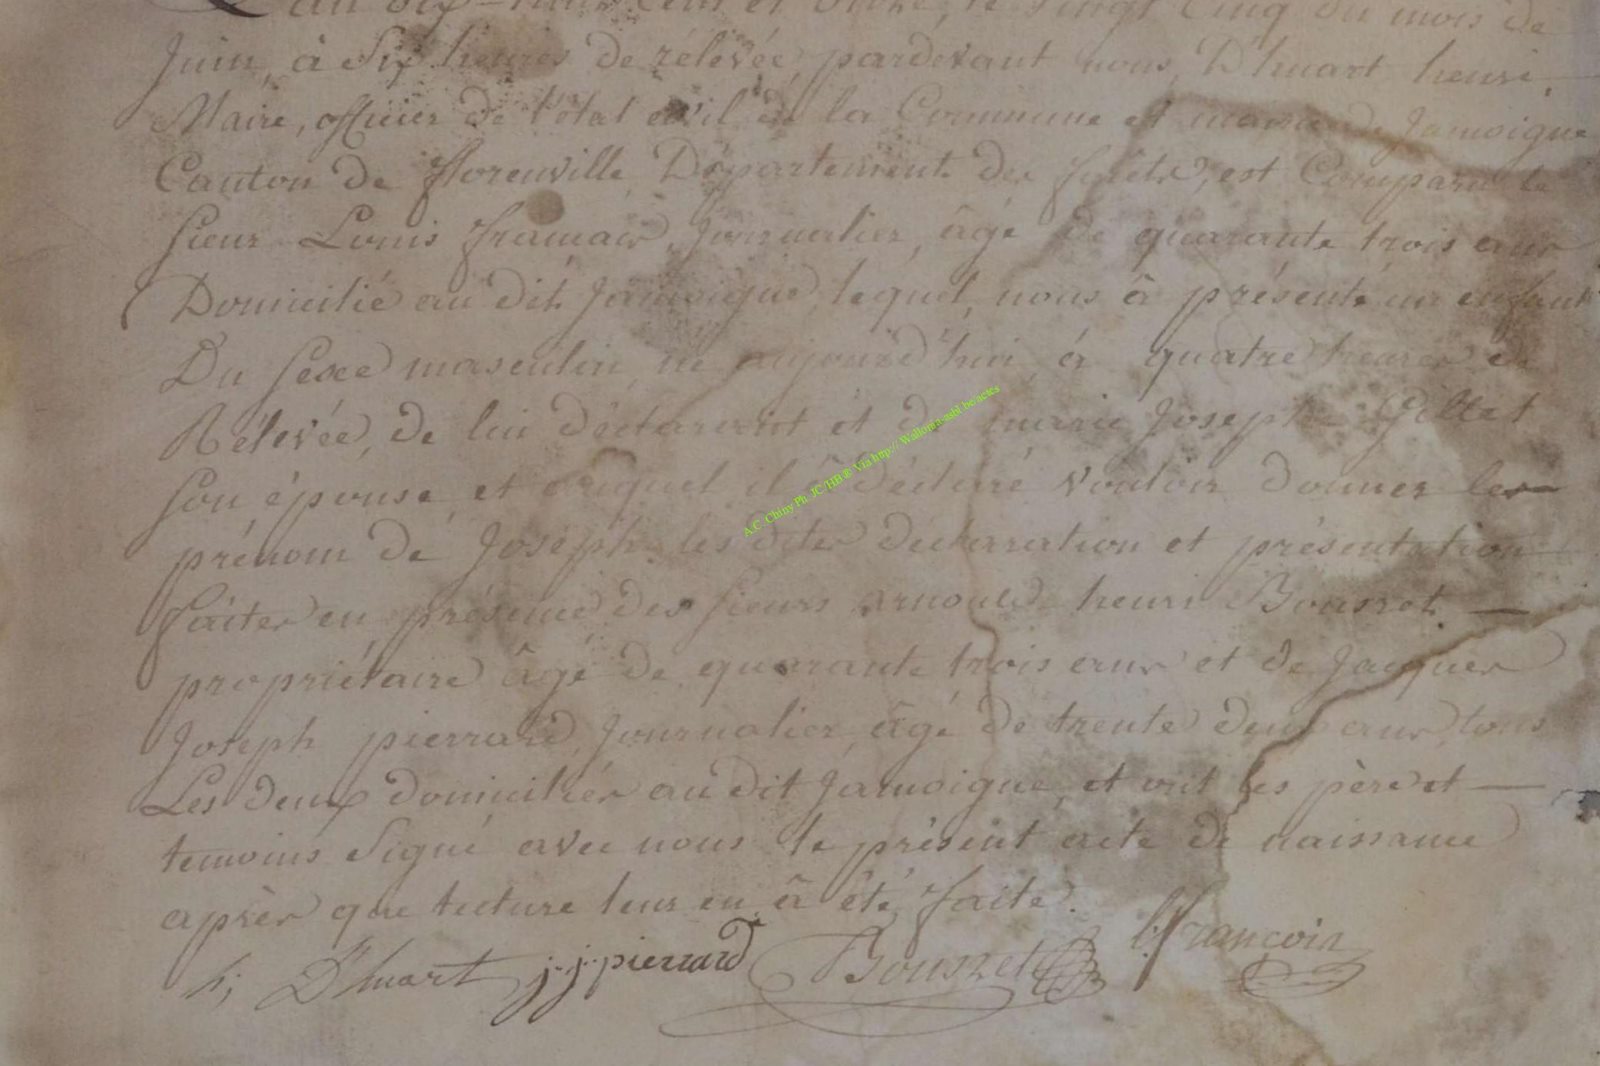 L'an dix-huit cent et onze, le vingt cinq du mois de
Juin, à Six heures de rélevée, pardevant nous, D'huart henri,
Maire, officier de l'état civil de la Commune et mairie de Jamoigne
Canton de fflorenville, Département des forêts, est Comparu le
Sieur Louis françois, Journalier, âgé de quarante trois ans
Domicilié au dit Jamoigne, lequel, nous à présenté un enfant
Du Sexe masculin, né aujourd'hui, à quatre heures de
Rélevée, de lui déclarant et de marie Joseph Gillet
Son épouse, et auquel il à déclaré vouloir donner les
prénom de Joseph. les dites déclaration et présentation
faites en présence des Sieurs arnould henri Bousret.
propriétaire âgé de quarante trois ans et de Jacques
Joseph pierrard, Journalier, âgé de trente deux ans, tous
Les deux domiciliés au dit Jamoigne, et ont les père et
temoins Signé avec nous le présent acte de naissance
après que lecture leur en à été faite.
h; D'huart j.j.pierrard Bousret l.françois
A.C. Chiny Ph. JC/HB® Via http:// Wallonia-asbl.be/actes